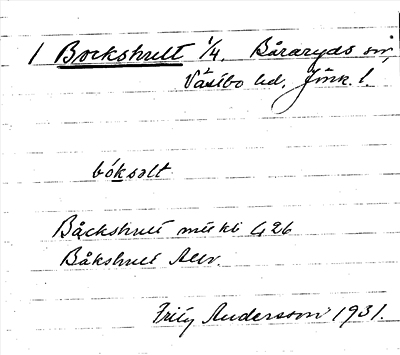 1 Bockshult 1/4. Båraryds sn,
Västbo hd. Jönk. l.
bóksǝlt
Båckshult mtskb 426
Båkshult Alv.
Frity Andersson 1931.